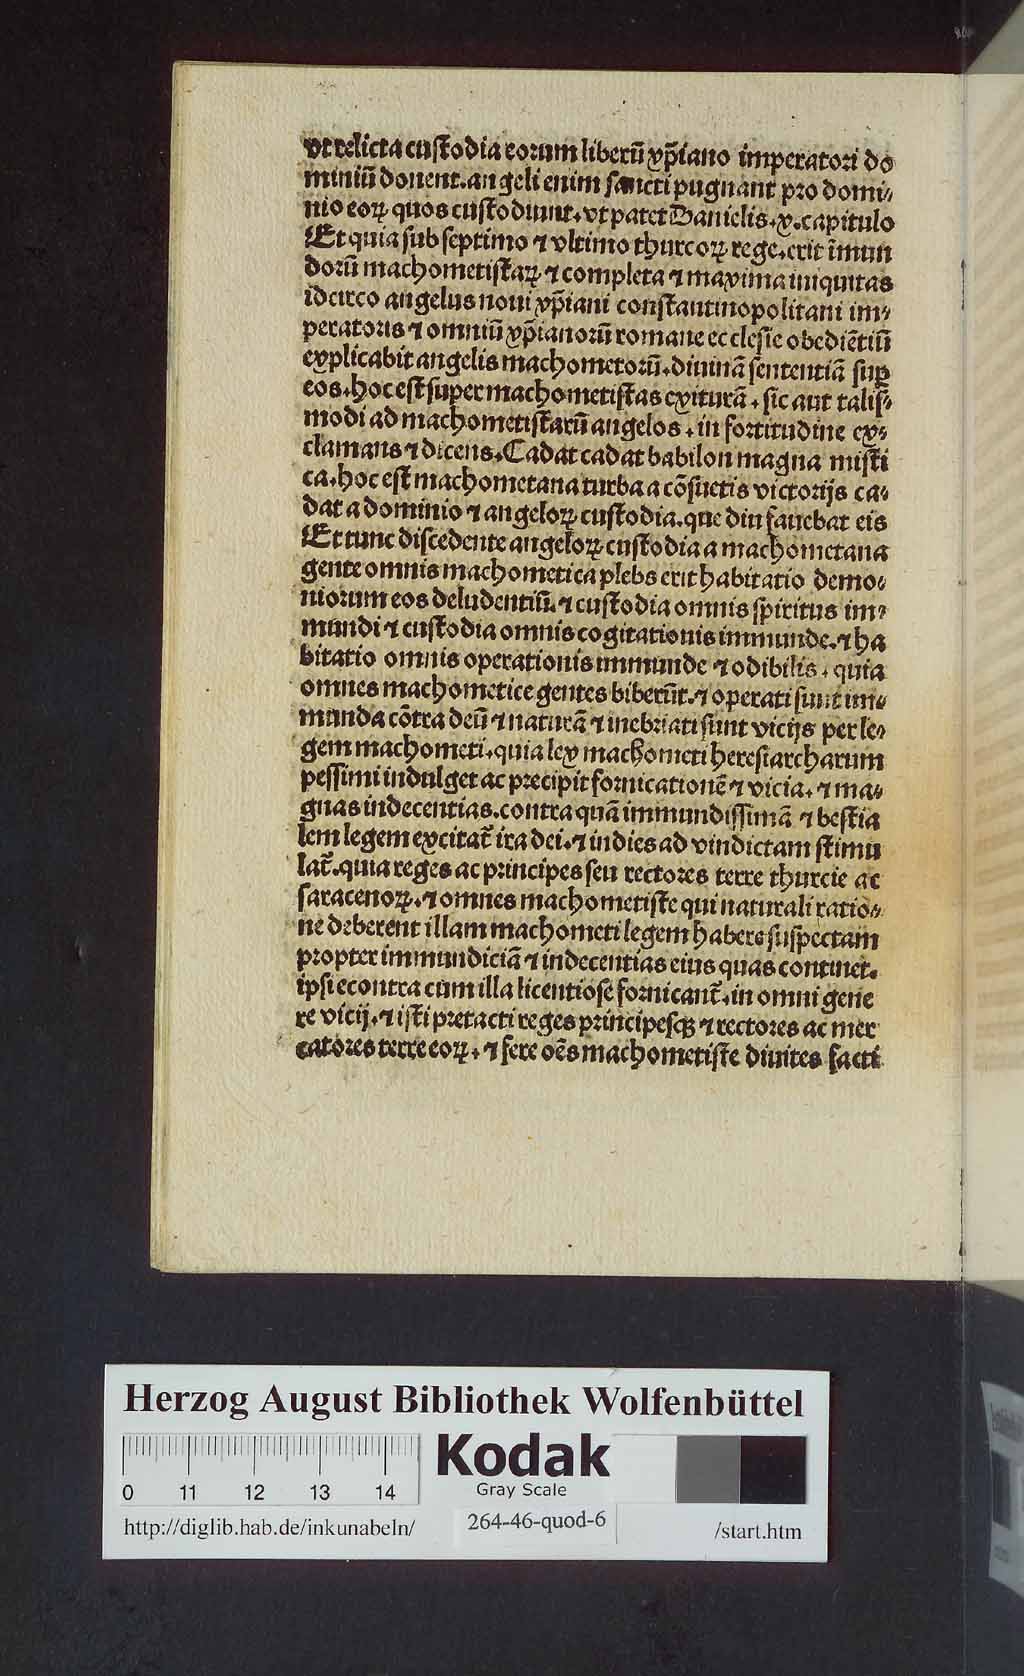 vt relicta custodia eorum liberū xp̄iano imperatori do
miniū donent. angeli enim sancti pugnant pro domi⸗
nio eoꝝ quos custodiunt. vt patet Danielis. x. capitulo
Et quia sub septimo ⁊ vltimo thurcoꝝ rege. erit īmun
dorū machometistaꝝ ⁊ completa ⁊ maxima iniquitas
idcirco angelus noui xp̄iani constantinopolitani im⸗
peratoris ⁊ omniū xp̄ianorū romane ecclesie obediētiū
explicabit angelis machometorū. diuinā sententiā suꝑ
eos. hoc est super machometistas exiturā. sic aut talis⸗
modi ad machometistarū angelos. in fortitudine ex⸗
clamans ⁊ dicens. Cadat cadat babilon magna misti
ca. hoc est machometana turba a cōsuetis victorijs ca⸗
dat a dominio ⁊ angeloꝝ custodia. que diu fauebat eis
Et tunc discedente angeloꝝ custodia a machometana
gente omnis machometica plebs erit habitatio demo⸗
niorum eos deludentiū. ⁊ custodia omnis spiritus im⸗
mundi ⁊ custodia omnis cogitationis immunde. ⁊ ha
bitatio omnis operationis immunde ⁊ odibilis. quia
omnes machometice gentes biberūt. ⁊ operati sunt im⸗
munda cōtra deū ⁊ naturā ⁊ inebriati sunt vicijs per le⸗
gem machometi. quia lex machometi heresiarcharum
pessimi indulget ac precipit fornicationē ⁊ vicia. ⁊ ma⸗
gnas indecentias. contra quā immundissimā ⁊ bestia
lem legem excitat̄ ira dei. ⁊ indies ad vindictam stimu
lat̄. quia reges ac principes seu rectores terre thurcie ac
saracenoꝝ. ⁊ omnes machometiste qui naturali ratio⸗
ne deberent illam machometi legem habere suspectam
propter immundiciā ⁊ indecentias eius quas continet.
ipsi econtra cum illa licentiose fornicant̄. in omni gene
re vicij. ⁊ isti pretacti reges principesqꝫ ⁊ rectores ac mer
catores terre eoꝝ. ⁊ fere oēs machometiste diuites facti
Herzog August Bibliothek Wolfenbüttel
Kodak
Gray Scale
0 11 12 13 14
http://diglib.hab.de/inkunabeln/ 264-46-quod-6 /start.htm